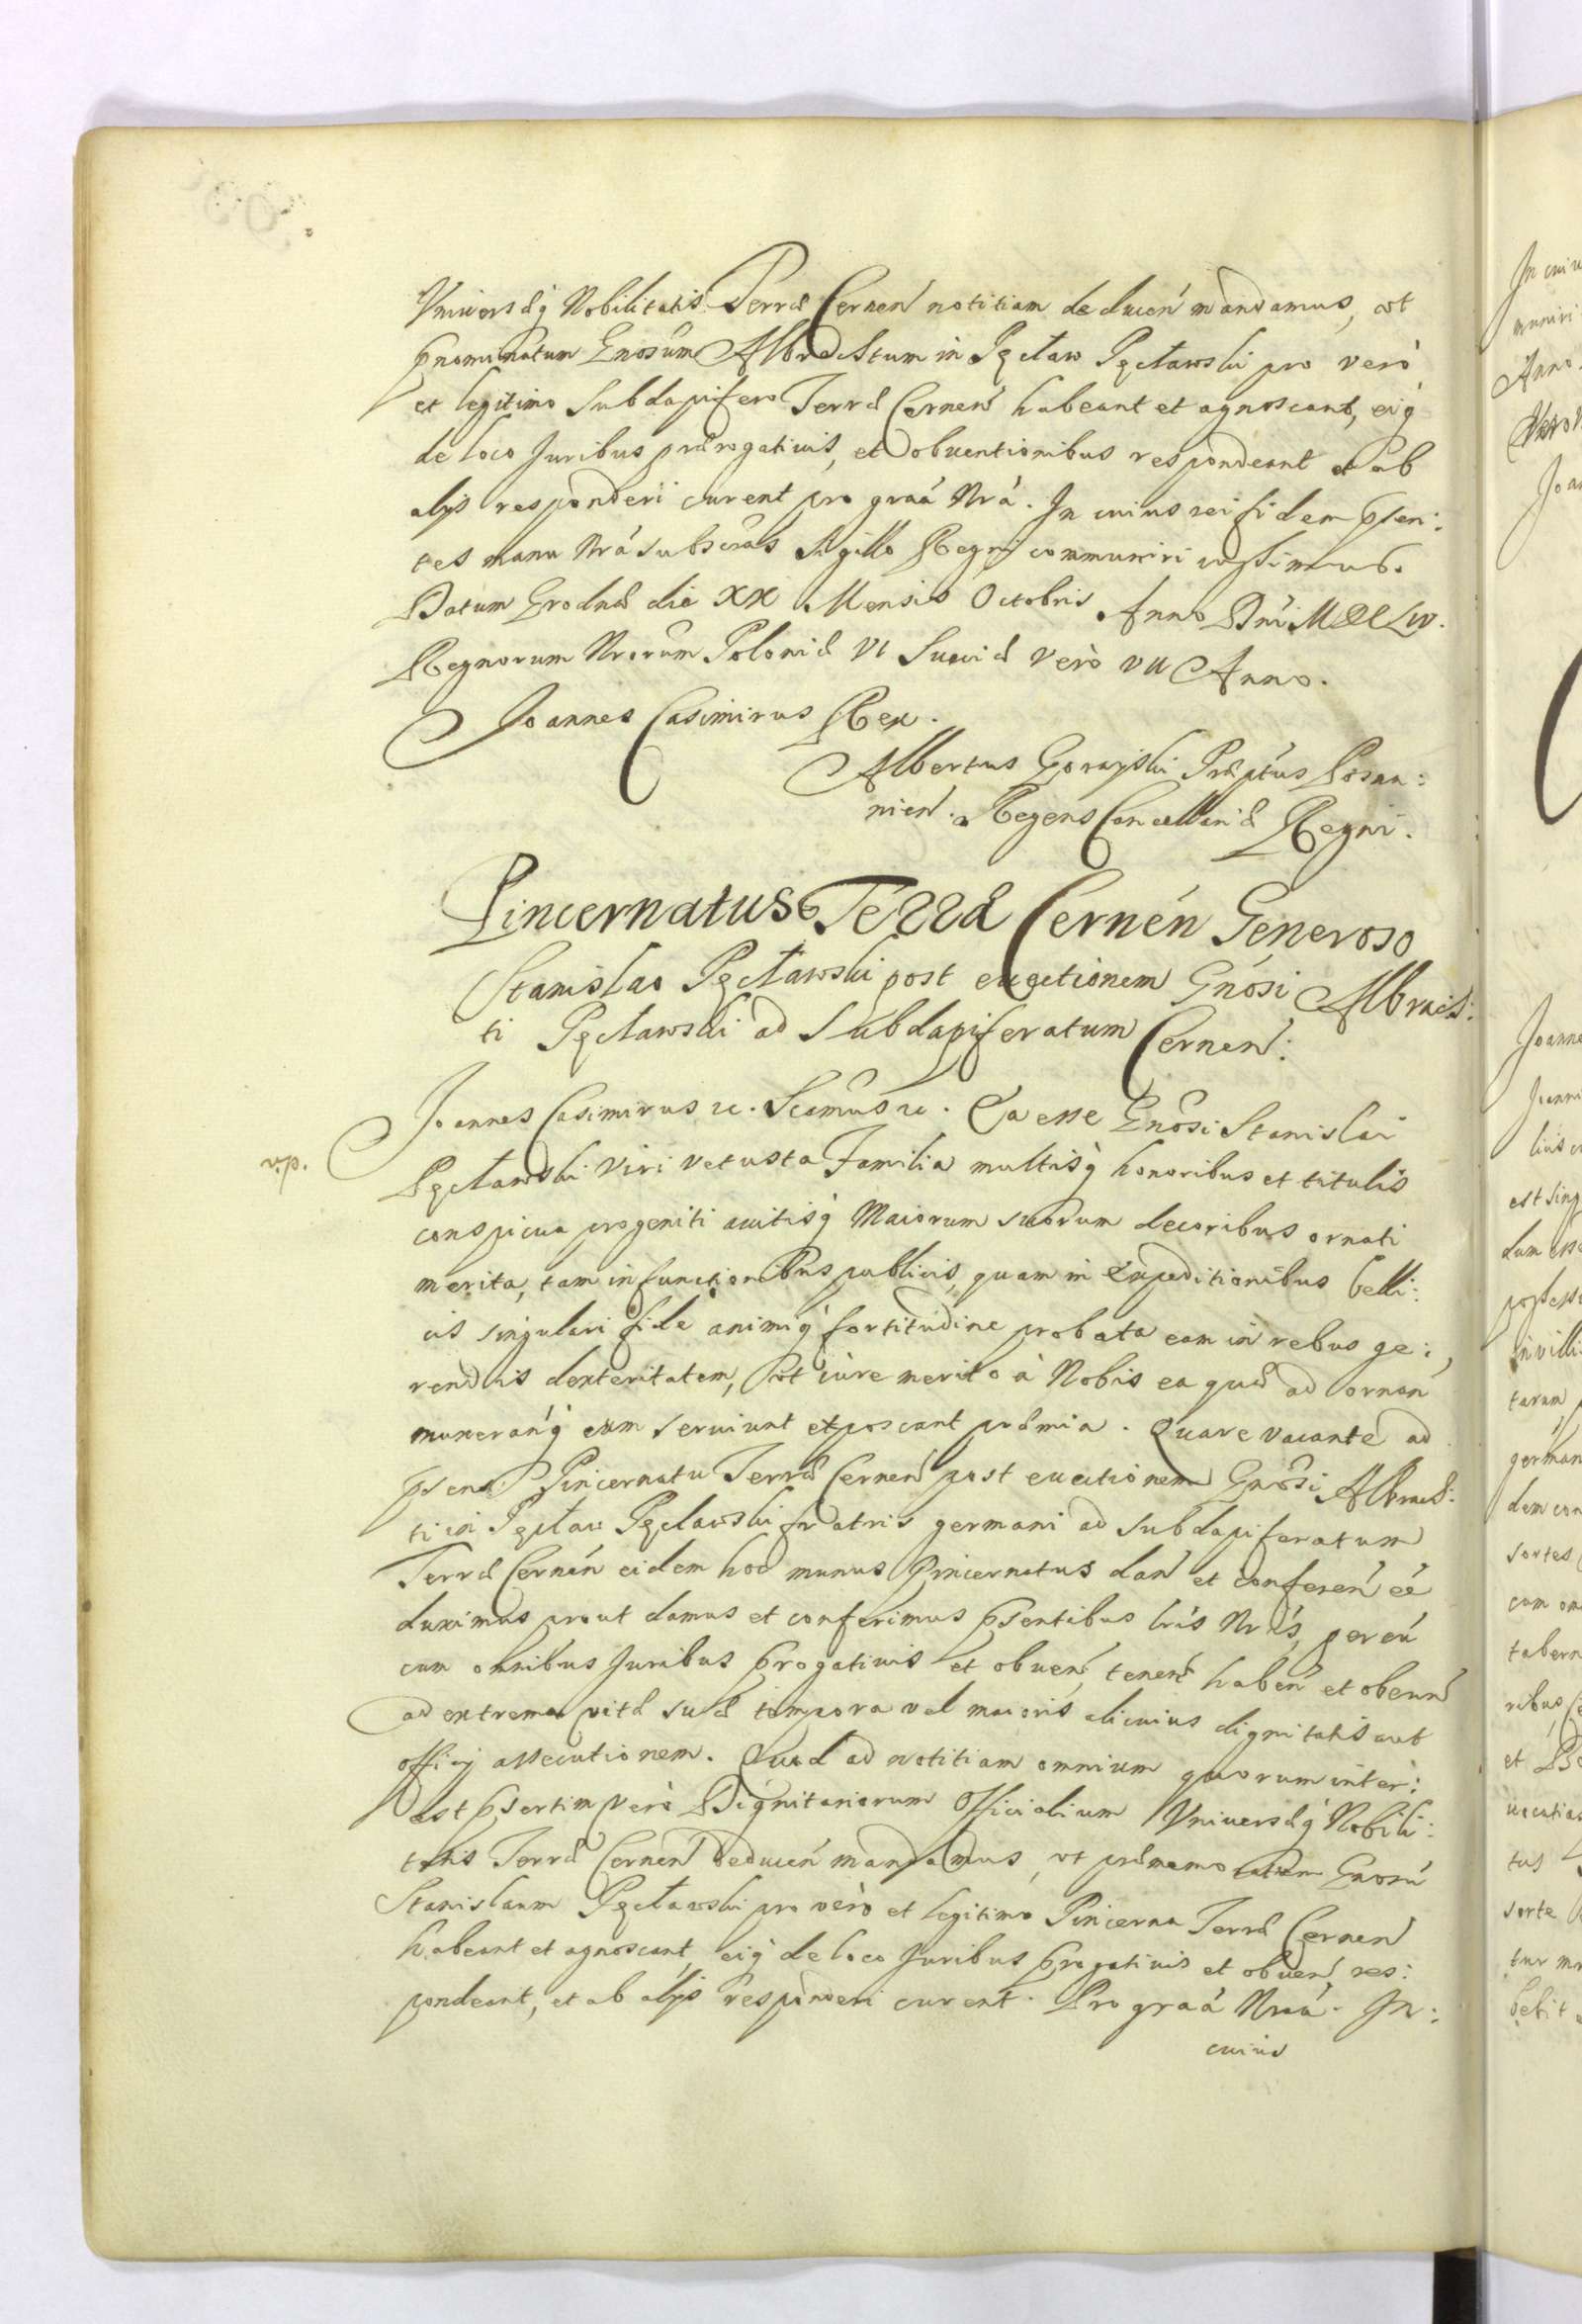 Universaeq̃ Nobilitatis Terrae Cernen̄ notitiam deducen̄ mandamus, vt
p̃nominatum Gnosum Albrachtum in Pęcław Pęcławski pro vero
et legitimo Subdapifero Terrae Cernen̄ habeant et agnoscant, eiq̃
de loco Juribus praerogativis, et obventionibus respondeant et ab
alijs responderi curent pro graã Nrã. In cuius rei fidem p̃sen:
tes manu Nrã subscras Sigillo Regni communiri iussimus.
Datum Grodnae die XX Mensis Octobris Anno Dni MDCLIV.
Regnorum Nrorum Poloniae VI Sueciae vero VII Anno.
Joannes Casimirus Rex.
Albertus Gorayski Praeptus Posna:
nien̄. Regens Cancellariae Regni.
Pincernatus Terrae Cernen̄ Generoso
Stanislao Pęcławski post euectionem Gnosi Albrach:
ti Pęcławski ad Subdapiferatum Cernen̄:
Joannes Casimirus rc. Scamus rc. Ea esse Gnosi Stanislai
v.p.
Pęcławski Viri vetusta Familia multisq̃ honoribus et titulis
conspicua progeniti auitisq̃ Maiorum suorum decoribus ornati
merita, tam in functionibus publicis, quam in Expeditionibus belli:
cis singulari fide animiq̃ fortitudine probata eam in rebus ge:
rendis dexteritatem, vt iure merito à Nobis ea quae ad ornan̄
muneranq̃ eum seruiunt exposcant praemia. Quare vacante ad
p̃sens Pincernatu Terrae Cernen̄ post euectionem Gnosi Albrach:
ti in Pęcław Pęcławski fratris germani ad subdapiferatum
Terrae Cernen̄ eidem hoc munus Pincernatus dan̄ et conferen̄ eẽ
duximus prout damus et conferimus p̃sentibus lris Nris, per eũ
cum omnibus Juribus p̃rogativis et obuen̄, tenen̄ haben̄ et obeun̄
ad extrema vitae suae tempora vel maioris alicuius dignitatis aut
officij assecutionem. Quod ad notitiam omnium quorum inter:
est p̃sertim vero Dignitariorum Officialium Universaeq̃ Nobili:
tatis Terrae Cernen̄ deducen̄ mandamus, vt praememoratum Gnosũ
Stanislaum Pęcławski pro vero et legitimo Pincerna Terrae Cernen̄
habeant et agnoscant, eiq̃ de loco Juribus p̃rogativis et obuen̄, res:
pondeant, et ab alijs responderi curent. Pro graã Nraã. In:
cuius